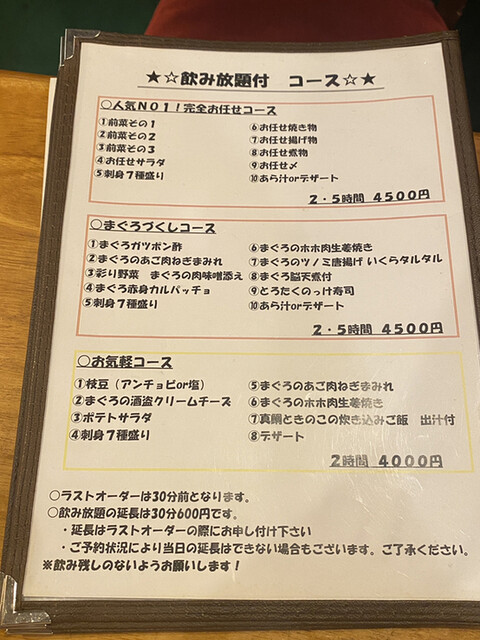 ★☆飲み放題付 コース☆★
○人気NO1!完全お任せコース
①前菜その1
②前菜その2
③前菜その3
④お任せサラダ
⑤刺身7種盛り
⑥お任せ焼き物
⑦お任せ揚げ物
⑧お任せ煮物
⑨お任せ〆
⑩あら汁orデザート
2・5時間 4500円
○まぐろづくしコース
①まぐろガツポン酢
②まぐろのあご肉ねぎまみれ
③彩り野菜 まぐろの肉味噌添え
④まぐろ赤身カルパッチョ
⑤刺身7種盛り
⑥まぐろのホホ肉生姜焼き
⑦まぐろのツノミ唐揚げ いくらタルタル
⑧まぐろ脳天煮付
⑨とろたくのっけ寿司
⑩あら汁orデザート
2・5時間 4500円
○お気軽コース
①枝豆(アンチョビor塩)
②まぐろの酒盗クリームチーズ
③ポテトサラダ
④刺身7種盛り
⑤まぐろのあご肉ねぎまみれ
⑥まぐろのホホ肉生姜焼き
⑦真鯛ときのこの炊き込みご飯 出汁付
⑧デザート
2時間 4000円
○ラストオーダーは30分前となります。
○飲み放題の延長は30分600円です。
・延長はラストオーダーの際にお申し付け下さい
・ご予約状況により当日の延長はできない場合もございます。ご了承ください。
※飲み残しのないようお願いします!